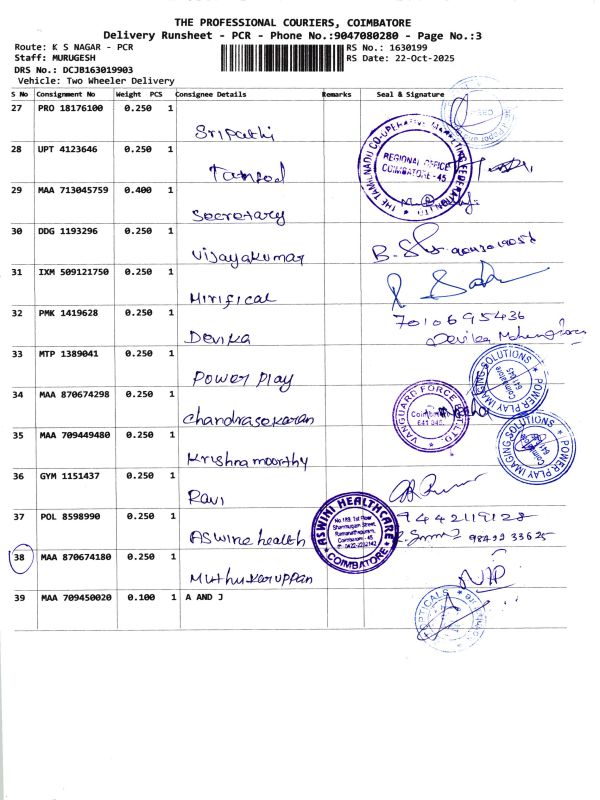 THE PROFESSIONAL COURIERS, COIMBATORE
Delivery Runsheet - PCR - Phone No.:9047080280 - Page No.:3
Route: K S NAGAR - PCR RS No.: 1630199
Staff: MURUGESH RS Date: 22-Oct-2025
DRS No.: DCJB163019903
Vehicle: Two Wheeler Delivery
S No Consignment No Weight PCS Consignee Details Remarks Seal & Signature
27 PRO 18176100 0.250 1
Sripathi
28 UPT 4123646 0.250 1
Tanfed
THE TAMILNADU CO-OPERATIVE MARKETING FEDERATION LTD
REGIONAL OFFICE
COIMBATORE - 45
29 MAA 713045759 0.400 1
Secretary
30 DDG 1193296 0.250 1
Vijayakumar
31 IXM 509121750 0.250 1
Mirifical
32 PMK 1419628 0.250 1
7010695436
Devika
33 MTP 1389041 0.250 1
Power Play
POWER PLAY IMAGING SOLUTIONS
Coimbatore
641 045
34 MAA 870674298 0.250 1
Chandrasekaran
VANGUARD FORCE
Coimbatore
641 045
35 MAA 709449480 0.250 1
Krishnamoorthy
POWER PLAY IMAGING SOLUTIONS
36 GYM 1151437 0.250 1
Ravi
37 POL 8598990 0.250 1
9442119128
Aswine health 98422 33625
ASWINI HEALTHCARE
COIMBATORE
38 MAA 870674180 0.250 1
Muthukaruppan
39 MAA 709450020 0.100 1 A AND J
OPTICALS